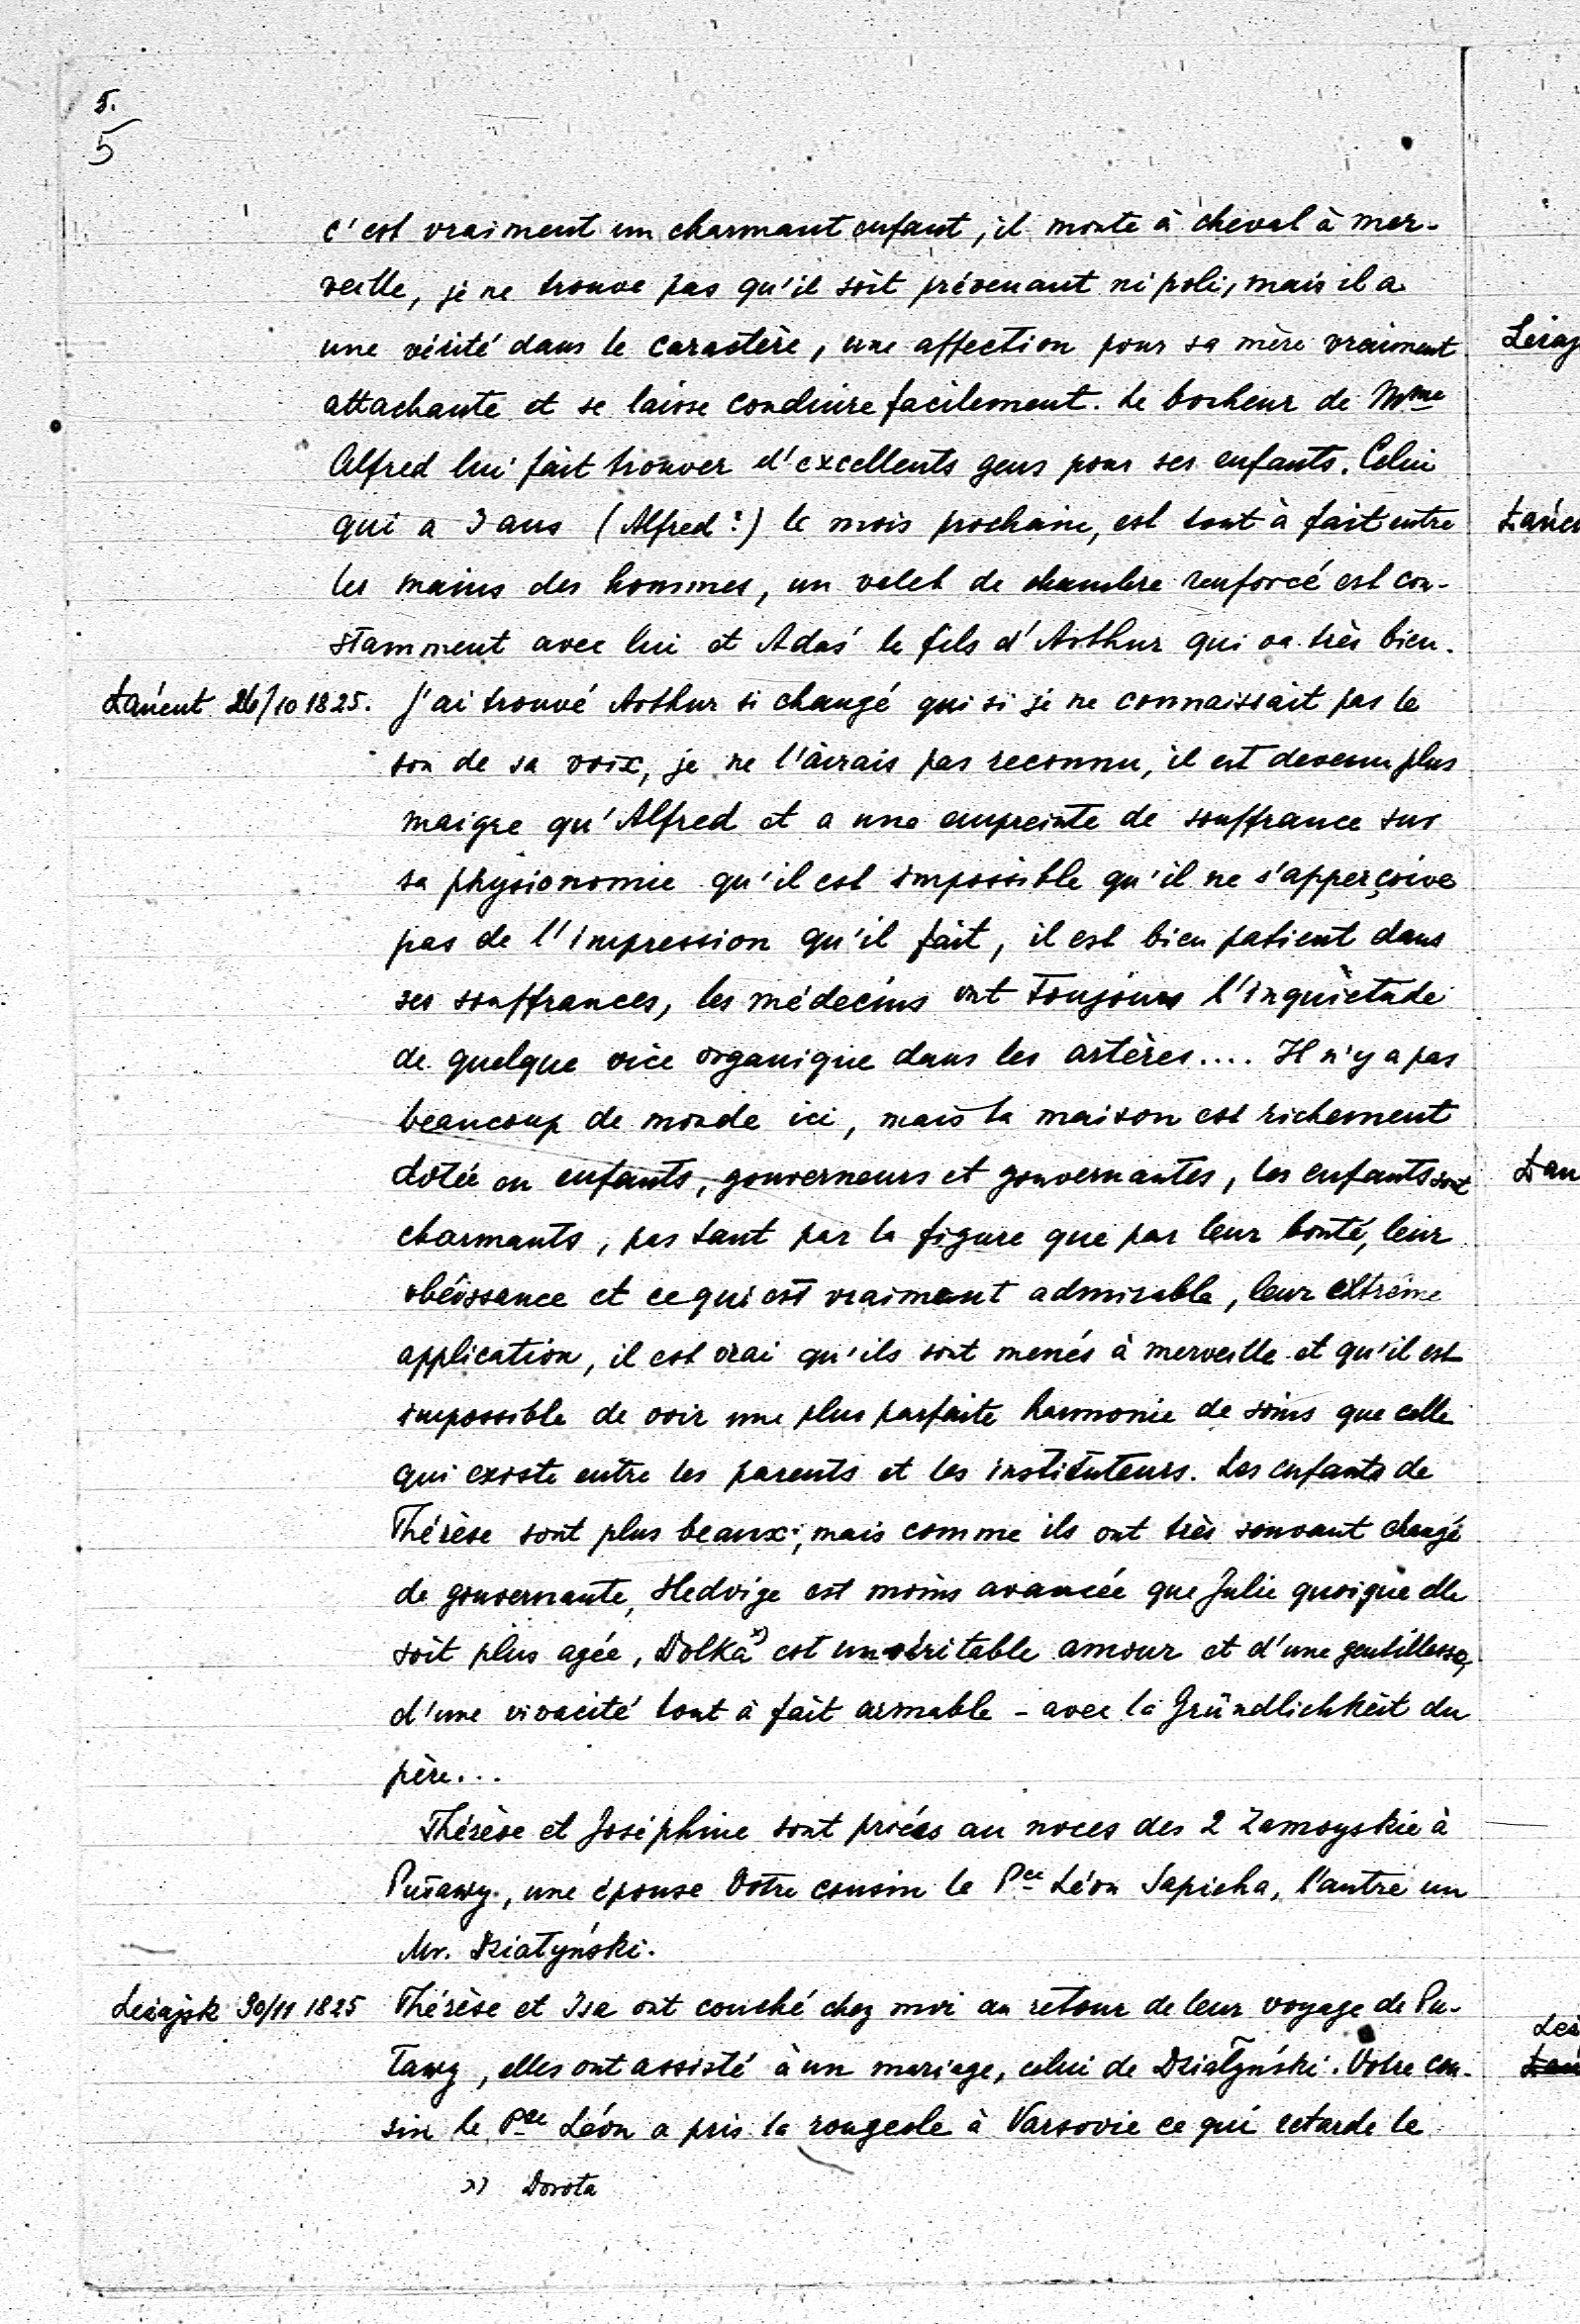 5.
5
c'est vraiment un charmant enfant, il monte à cheval à mer-
veille, je ne trouve pas qu'il soit prévenant ni poli, mais il a
une vérité dans le caractère, une affection pour sa mère vraiment
attachante et se laisse conduire facilement. Le bonheur de Mme
Alfred lui fait trouver d'excellents gens pour ses enfants. Celui
qui a 3 ans (Alfred?) le mois prochain, est tout à fait entre
les mains des hommes, un valet de chambre renforcé est con-
stamment avec lui et Adaś le fils d'Arthur qui va très bien.
Łańcut 26/10 1825. J'ai trouvé Arthur si changé qui si je ne connaissait pas le
son de sa voix, je ne l'aurais pas reconnu, il est devenu plus
maigre qu'Alfred et a une empreinte de souffrance sur
sa physionomie qu'il est impossible qu'il ne s'apperçoive
pas de l'impression qu'il fait, il est bien patient dans
ses souffrances, les médecins ont toujours l'inquiétude
de quelque vice organique dans les artères.... Il n'y a pas
beaucoup de monde ici, mais la maison est richement
dotée en enfants, gouverneurs et gouvernantes, les enfants sont
charmants, pas tant par la figure que par leur bonté, leur
obéissance et ce qui est vraiment admirable, leur extrême
application, il est vrai qu'ils sont menés à merveille et qu'il est
impossible de voir une plus parfaite harmonie de soins que celle
qui existe entre les parents et les instituteurs. Les enfants de
Thérèse sont plus beaux, mais comme ils ont très souvant changé
de gouvernante, Hedvige est moins avancée que Julie quoique elle
soit plus agée, Dolka x) est un véritable amour et d'une gentillesse,
d'une vivacité tout à fait aimable - avec la Gründlichkeit du
père...
Thérèse et Joséphine sont priées au noces des 2 Zamoyskie à
Puławy, une épouse Votre cousin le Pce Léon Sapieha, l'autre un
Mr. Działyński.
Leżajsk 30/11 1825 Thérèse et Isa ont couché chez moi au retour de leur voyage de Pu-
ławy, elles ont assisté à un mariage, celui de Działyński. Votre cou-
sin le Pce Léon a pris la rougeole à Varsovie ce qui retarde le
x) Dorota